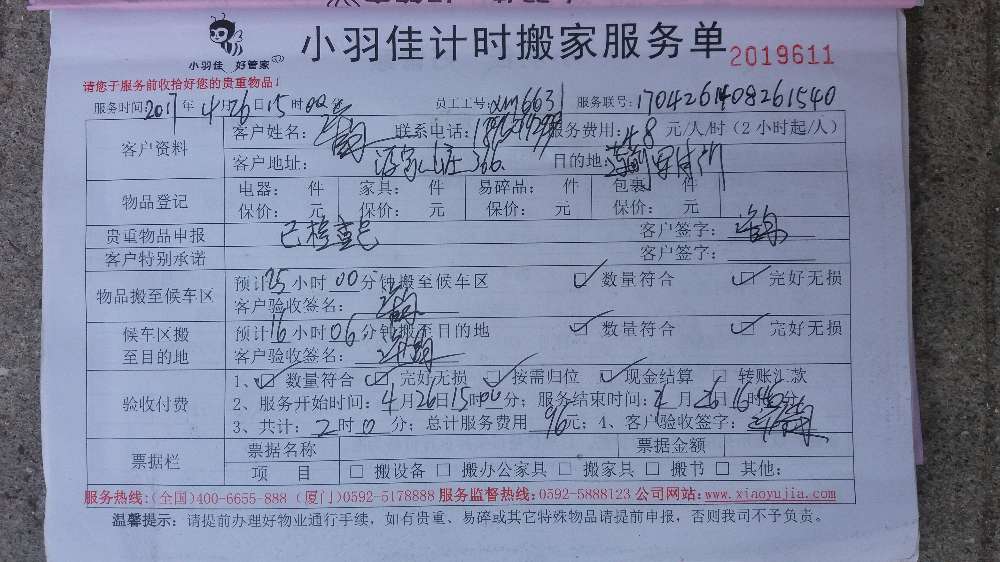 小羽佳计时搬家服务单
2019611
小羽佳 好管家
请您于服务前收拾好您的贵重物品!
服务时间:2017年4月26日15时00分 员工工号:xm6631 服务联号:1704261408261540
客户资料
客户姓名: 联系电话: 服务费用:48元/人/时(2小时起/人)
客户地址: 366 目的地:
物品登记
电器: 件 家具: 件 易碎品: 件 包裹: 件
保价: 元 保价: 元 保价: 元 保价: 元
贵重物品申报 已检查完 客户签字:
客户特别承诺 客户签字:
物品搬至候车区
预计15小时00分钟搬至候车区 数量符合 完好无损
客户验收签名:
候车区搬至目的地
预计16小时06分钟搬至目的地 数量符合 完好无损
客户验收签名:
验收付费
1、 数量符合 完好无损 按需归位 现金结算 转账汇款
2、服务开始时间:4月26日15时00分;服务结束时间:4月26日16时46分
3、共计:2时0分;总计服务费用96元;4、客户验收签字:
票据栏
票据名称 票据金额
项 目 搬设备 搬办公家具 搬家具 搬书 其他:
服务热线:(全国)400-6655-888 (厦门)0592-5178888 服务监督热线:0592-5888123 公司网站:www.xiaoyujia.com
温馨提示:请提前办理好物业通行手续,如有贵重、易碎或其它特殊物品请提前申报,否则我司不予负责。